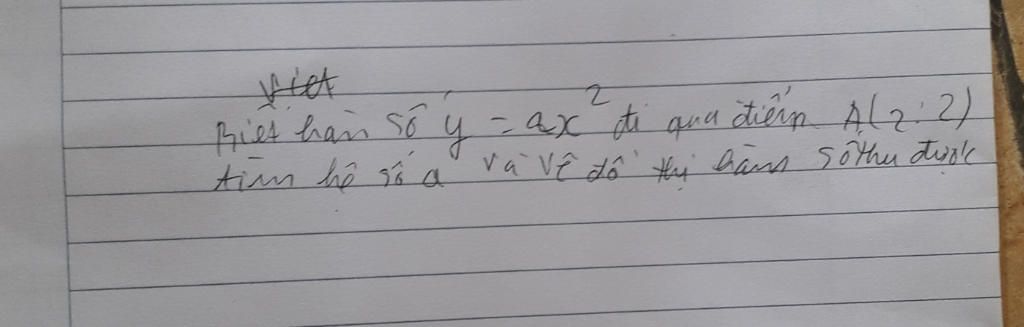 Viet
Biết hàn số y = ax² đi qua điểm A(2; 2)
tìm hệ số a và vẽ đồ thị hàm số thu được